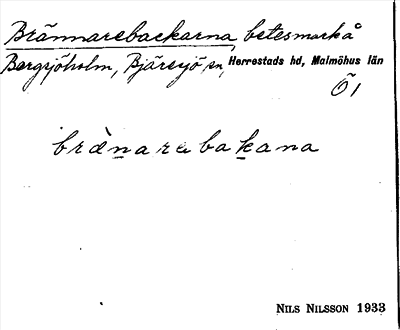 Brännarebackarna, betesmark å
Bergsjöholm, Bjäresjö sn, Herrestads hd, Malmöhus län
Ö 1
brä̀nareba​kana
NILS NILSSON 1933